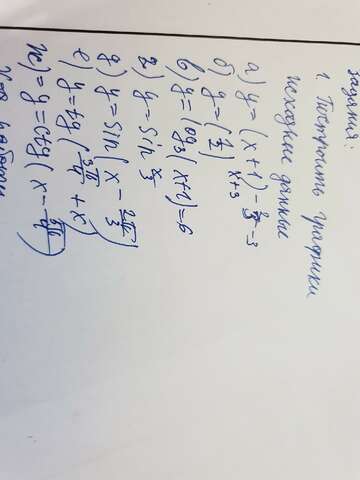 задания:
1. Построить графики
исходные данные
а) y = (x+1)^(-2/3) - 3
б) y = (1/2)^(x+3)
в) y = log₃(x+1) = 6
г) y = sin x/3
д) y = sin(x - 2π/3)
е) y = tg(3π/4 + x)
ж) = y = ctg(x - 3π/4)